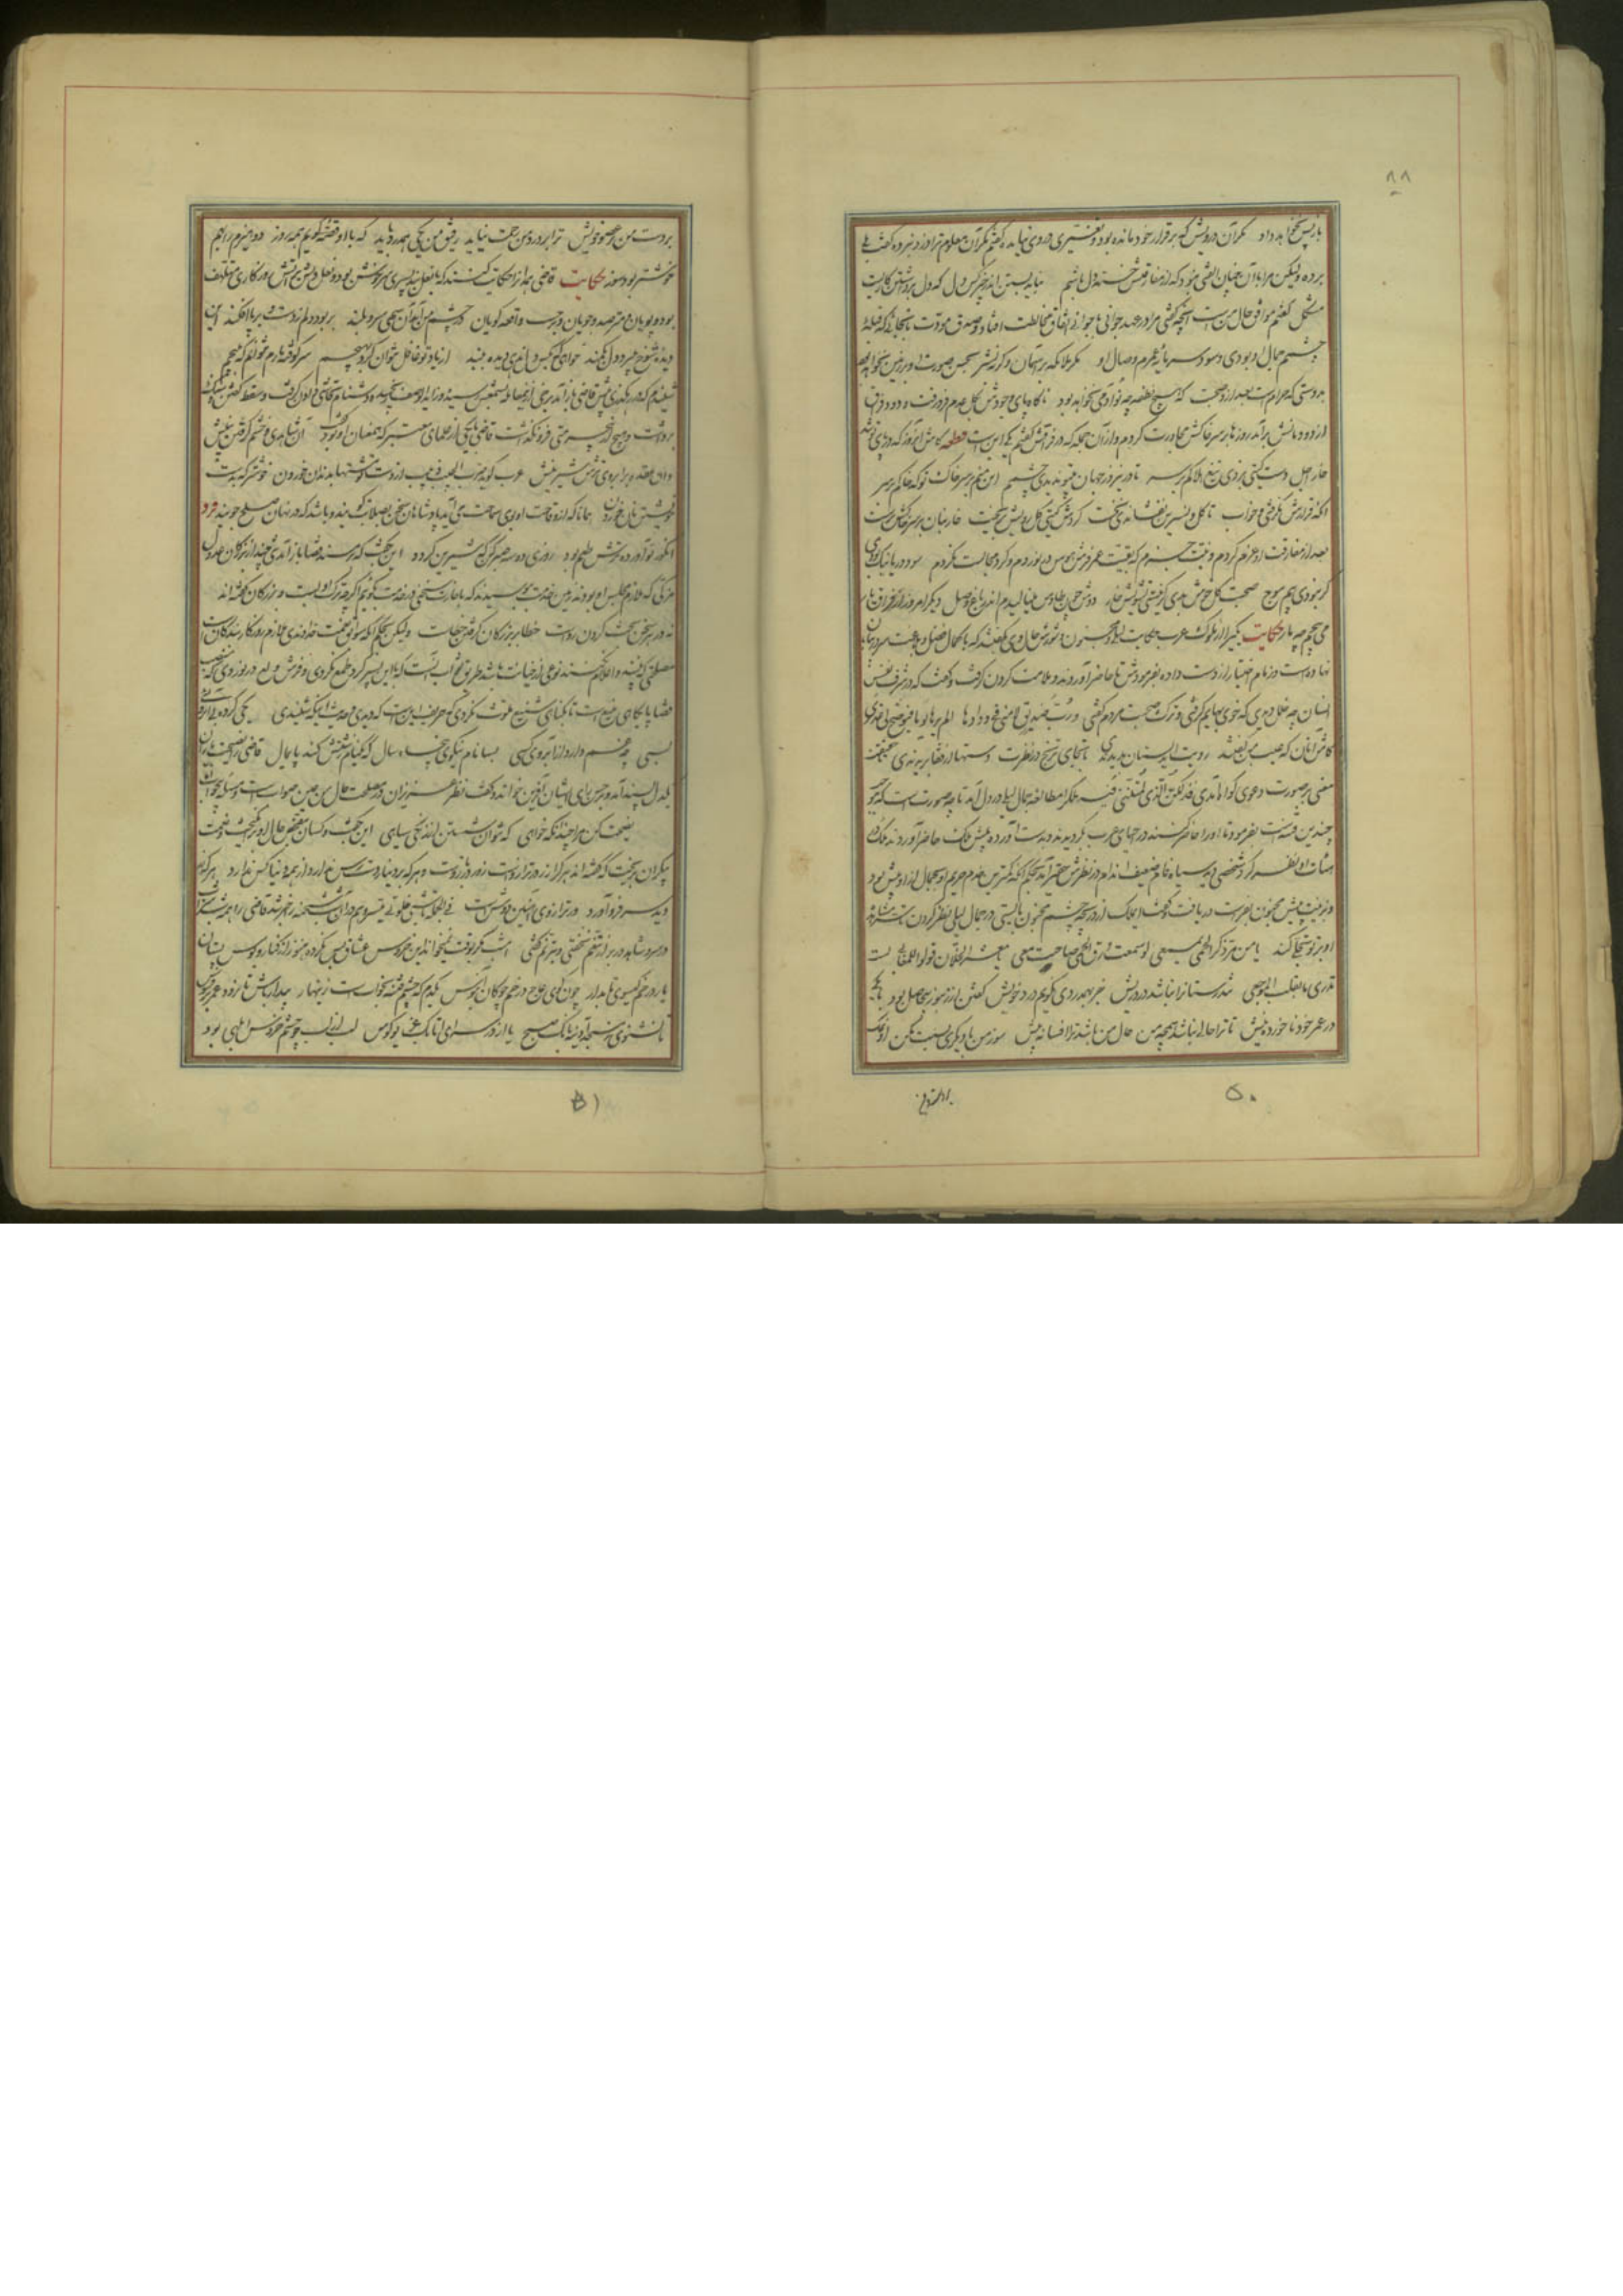 ۸۸
باز پس نخواهد داد مگر آن درویش که بر قرار خود مانده بود و تغییری در وی نیامده گفتم مگر آن معلوم ترا دزد نبرده گفت بلی
برده ولیکن مرا با آن چنان الفتی نبود که از مفارقتش خسته دل باشم نباید بستن اندر چیز و کس دل که دل برداشتن کاریست
مشکل گفتم موافق حال من است آنچه گفتی مرا در عهد جوانی با جوانی اتفاق مخالطت افتاد و صدق مودت تا بجائی که قبله
چشمم جمال او بودی و سود سرمایه عمرم وصال او مگر ملائکه بر آسمان وگرنه بشر بحسن صورت او در زمین نخواهد بود
بدوستی که حرام است بعد ازو صحبت که هیچ نطفه چو او آدمی نخواهد بود ناگاه پای وجودش بگل عدم فرو رفت و دود فراق
از دودمانش برآمد روزها بر سر خاکش مجاورت کردم و از آن جمله که در فراقش گفتم یکی این است قطعه کاش آن روز که در پای تو شد
خار اجل دست گیتی بزدی تیغ هلاکم بر سر تا درین روز جهان بی تو ندیدی چشمم این منم بر سر خاک تو که خاکم بر سر
آنکه قرارش نگرفتی و خواب تا گل و نسرین نفشاندی نخست گردش گیتی گل رویش بریخت خاربنان بر سر خاکش برست
بعد از مفارقت او عزم کردم و نیت جزم که بقیت عمر فرش هوس در نوردم و گرد مجالست نگردم سود دریا نیک بودی
گر نبودی بیم موج صحبت گل خوش بدی گر نیستی تشویش خار دوش چون طاوس مینالیدم اندر باغ وصل دیگر امروز از فراق یار
می پیچم چو مار حکایت یکی را از ملوک عرب حکایت لیلی و مجنون و شورش حال وی گفتند که با کمال فضل و بلاغت سر در بیابان
نهاده است و زمام اختیار از دست داده بفرمودش تا حاضر آوردند و ملامت کردن گرفت و گفت که در شرف نفس
انسان چه خلل دیدی که خوی بهایم گرفتی و ترک صحبت مردم گفتی و رب صدیق لامنی فی ودادها الم یرها یوما فیوضح لی عذری
کاش آنان که عیب من گفتند رویت ای دلستان بدیدندی تا بجای ترنج در نظرت دستها
معنی بر صورت دعوی گواه آمدی فذلکن الذی لمتننی فیه ملک را مطالعه جمال لیلی در دل آمد تا چه صورت است که موجب
چندین فتنه است بفرمود تا او را حاضر کنند در احیای عرب بگردیدند و بدست آورده پیش ملک حاضر آوردند ملک در
هیئات او نظر کرد شخصی دید سیاه فام ضعیف اندام در نظرش حقیر آمد بحکم آنکه کمترین خدم حرم او بجمال ازو بیش بود
و بزینت پیش مجنون بفراست دریافت گفت ای ملک از دریچه چشم مجنون بایستی در جمال لیلی نظر کردن تا سر مشاهده
او بر تو تجلی کند یا من مر ذکر الحمی بمسمعی لو سمعت ورق الحمی صاحت معی یا معشر الخلان قولوا للمعافی لست
تدری ما بقلب الموجع تندرستانرا نباشد درد ریش جز بهمدردی نگویم درد خویش گفتن از زنبور بی حاصل بود با یکی
در عمر خود ناخورده نیش تا ترا حالی نباشد همچو من حال من باشد ترا افسانه پیش سوز من با دیگری نسبت مکن او نمک
۵۰
بر دست من بر عضو ریش ترا بر درد من رحمت نیاید رفیق من یکی همدرد باید که با او قصه گویم همه روز دو هیزم را بهم
خوشتر بود سوز حکایت قاضی همدان را حکایت کنند که با نعلبند پسری سرخوش بود و نعل دلش در آتش روزگاری در طلبش متلهف
بود و پویان و مترصد و جویان و بر حسب واقعه گویان در چشم من آمد آن سهی سرو بلند بربود دلم ز دست و در پا افکند این
دیده شوخ میبرد دل بکمند خواهی که بکس دل ندهی دیده ببند از یاد تو غافل نتوان کرد بهیچم سر کوفته مارم نتوانم که نپیچم
شنیدم که در رهگذری پیش قاضی باز آمد برخی ازین معامله بسمعش رسیده و زایدالوصف رنجیده دشنام بی تحاشی دادن گرفت و سقط گفتن و سنگ
برداشت و هیچ از بیحرمتی فرو نگذاشت قاضی یکی را از علمای معتبر که همعنان او بود گفت آن شاهدی و خشم گرفتن بینش
وان عقده بر ابروی ترش شیرینش عرب گوید ضرب الحبیب زبیب از دست تو مشت بر دهان خوردن خوشتر که بدست
خویش نان خوردن همانا که از وقاحت او بوی سماحت می آید پادشاهان سخن بصلابت گویند و باشد که در نهان صلح جویند فرد
انگور نوآورده ترش طعم بود روزی دو سه صبر کن که شیرین گردد این بگفت و بمسند قضا باز آمد تنی چند از بزرگان عدول
که ملازم مجلس او بودند زمین خدمت ببوسیدند که باجازت سخنی در خدمت بگوئیم اگرچه ترک ادبست و بزرگان گفته اند
نه در هر سخن بحث کردن رواست خطا بر بزرگان گرفتن خطاست ولیکن بحکم آنکه سوابق نعمت خداوندی ملازم روزگار بندگان است
مصلحتی که بینند و اعلام نکنند نوعی از خیانت باشد طریق صواب آنست که با این پسر گرد طمع نگردی و فرش ولع در نوردی که منصب
قضا پایگاهی منیع است تا بگناهی شنیع ملوث نگردی که حریف اینست که دیدی و حدیث اینکه شنیدی یکی کرده بی آبروئی
بسی چه غم دارد از آبروی کسی بسا نام نیکوی پنجاه سال که یک نام زشتش کند پایمال قاضی را نصیحت یاران
یکدل پسند آمد و بر حسن رای ایشان آفرین خواند و گفت نظر عزیزان در مصلحت حال من عین صوابست و مسئله بیجواب اما
نصیحت کن مرا چندانکه خواهی که نتوان شستن از زنگی سیاهی این بگفت و کسان بتفحص حال او برانگیخت و نعمت
بیکران بریخت که گفته اند هر کرا زر در ترازوست زور در بازوست و هر که بر دینار دسترس ندارد از همه دنیا کس ندارد هر که زر
دید سر فرو آورد ور ترازوی آهنین دوش است فی الجمله شبی خلوتی میسر و هم در آن شب شحنه را خبر شد قاضی را همه شب شراب
در سر و شاهد در بر از تنعم نخفتی و بترنم گفتی امشب مگر بوقت نمیخواند این خروس عشاق بس نکرده هنوز از کنار و بوس پستان
یار در خم گیسوی تابدار چون گوی عاج در خم چوگان آبنوس یکدم که چشم فتنه بخوابست زینهار بیدار باش تا نرود عمر بر فسوس
تا نشنوی ز مسجد آدینه بانگ صبح یا از در سرای اتابک غریو کوس لب از لب چو چشم خروس ابلهی بود
۵۱